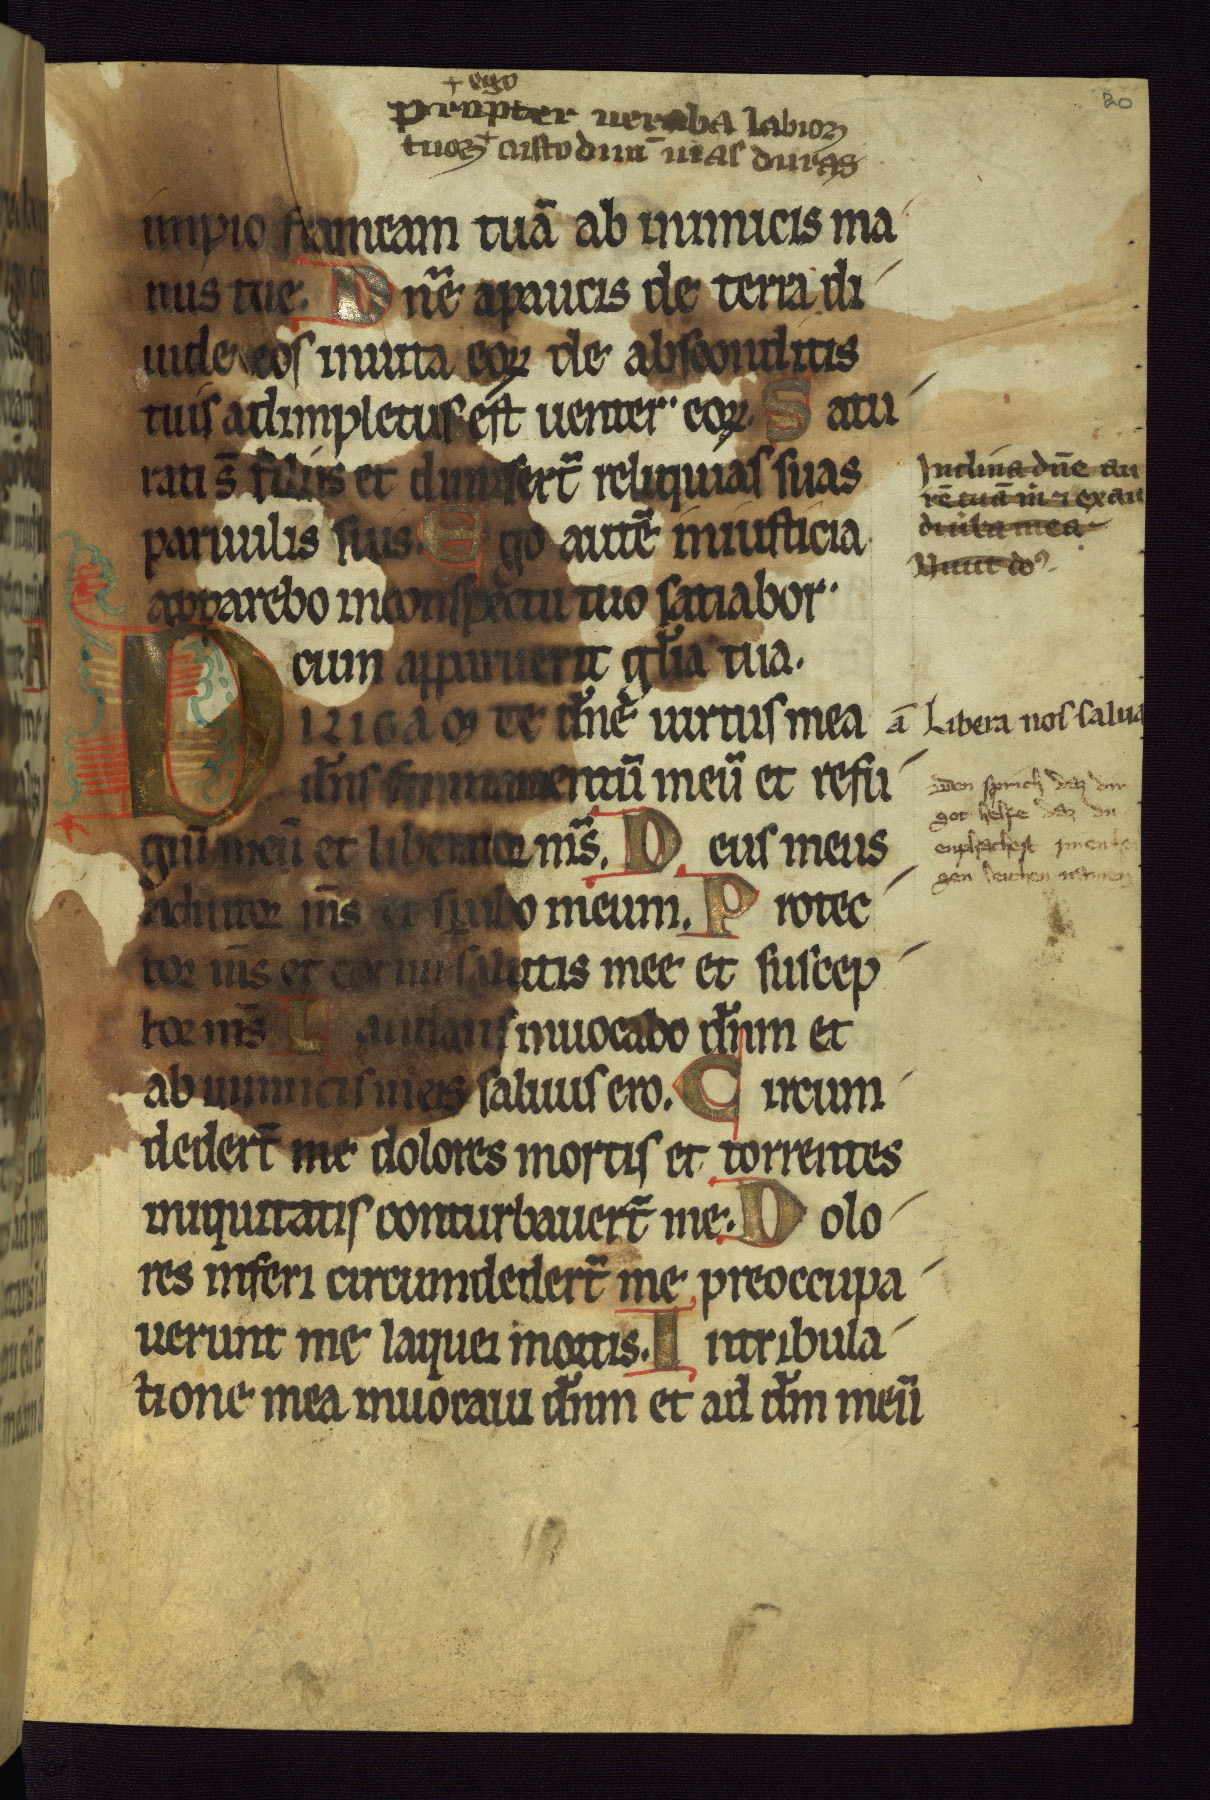 20
+ ego
propter uerba labioꝝ
tuoꝝ + custodiui uias duras
impio frameam tuā ab inimicis ma
nus tue. Dn̄e apaucis de terra di
uide eos inuita eoꝝ de absconditis
tuis adimpletus est uenter eoꝝ. Satu
rati s̄ filiis et dimiserūt reliquias suas
paruulis suis. Ego autē iniusticia
apparebo inconspectu tuo satiabor
cum apparuerit gl̄ia tua.
DILIGAM te dn̄e uirtus mea
dn̄s firmamentū meū et refu
giū meū et liberator m̄s. Deus meus
adiutor m̄s et sꝑabo meum. Protec
tor m̄s et cornu salutis mee et suscep
tor m̄s Laudans inuocabo dn̄m et
ab inimicis meis saluus ero. Circum
dedert̄ me dolores mortis et torrentes
iniquitatis conturbauert̄ me. Dolo
res inferi circumdedert̄ me preoccupa
uerunt me laquei mortis. Intribula
tione mea inuocaui dn̄m et ad dm̄ meū
Inclina dn̄e au
rē tuā m̄ ⁊ exau
di uba mea
Uiuit do
ā Libera nos salua
Den sprich daz dir
got helfe daz du